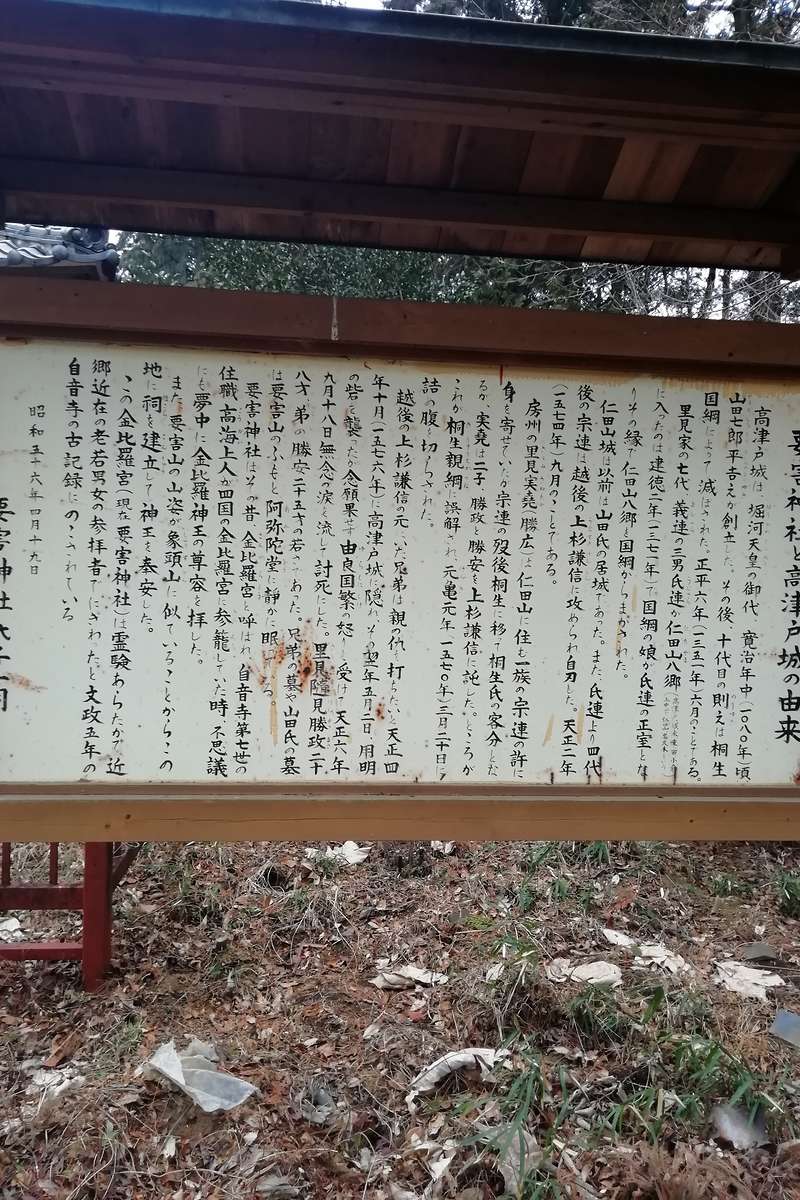 要害神社と高津戸城の由来
高津戸城は、堀河天皇の御代、寛治年中(一〇八〇年)頃
山田七郎平吉之が創立した。その後、十代目の則之は桐生
国綱によって滅ぼされた。正平六年(一三五一年)六月のことである。
里見家の七代、義連の三男氏連が仁田山八郷
に入ったのは建徳二年(一三七一年)で国綱の娘が氏連の正室とな
りその縁で仁田山八郷を国綱からまかされた。
仁田山城は以前は山田氏の居城であった。また、氏連より四代
後の宗連は越後の上杉謙信に攻められ自刃した。天正二年
(一五七四年)九月のことである。
房州の里見実堯(勝広)は仁田山に住む一族の宗連の許に
身を寄せていたが宗連の歿後桐生に移って桐生氏の客分とな
るが、実堯は二子、勝政、勝安を上杉謙信に託した。ところが
これが桐生親綱に誤解され、元亀元年(一五七〇年)三月二十日に
詰の腹を切らされた。
越後の上杉謙信の元にいた兄弟は親の仇を打ちたいと天正四
年十月(一五七六年)に高津戸城に隠れ、その翌年五月二日、用明
の砦を襲ったが念願果せず由良国繁の怒りを受けて天正六年
九月十八日無念の涙を流して討死にした。里見随見勝政二十
八才、弟の勝安二十五才の若さであった。兄弟の墓や山田氏の墓
は要害山のふもと阿弥陀堂に静かに眠っている。
要害神社はその昔、金比羅宮と呼ばれ、自音寺第七世の
住職、高海上人が四国の金比羅宮へ参籠していた時、不思議
にも夢中に金比羅神王の尊容を拝した。
また、要害山の山姿が象頭山に似ていることからこの
地に祠を建立して神王を奉安した。
この金比羅宮(現在要害神社)は霊験あらたかで近
郷近在の老若男女の参拝者でにぎわったと文政五年の
自音寺の古記録にのこされている
昭和五十六年四月十九日
要害神社氏子一同